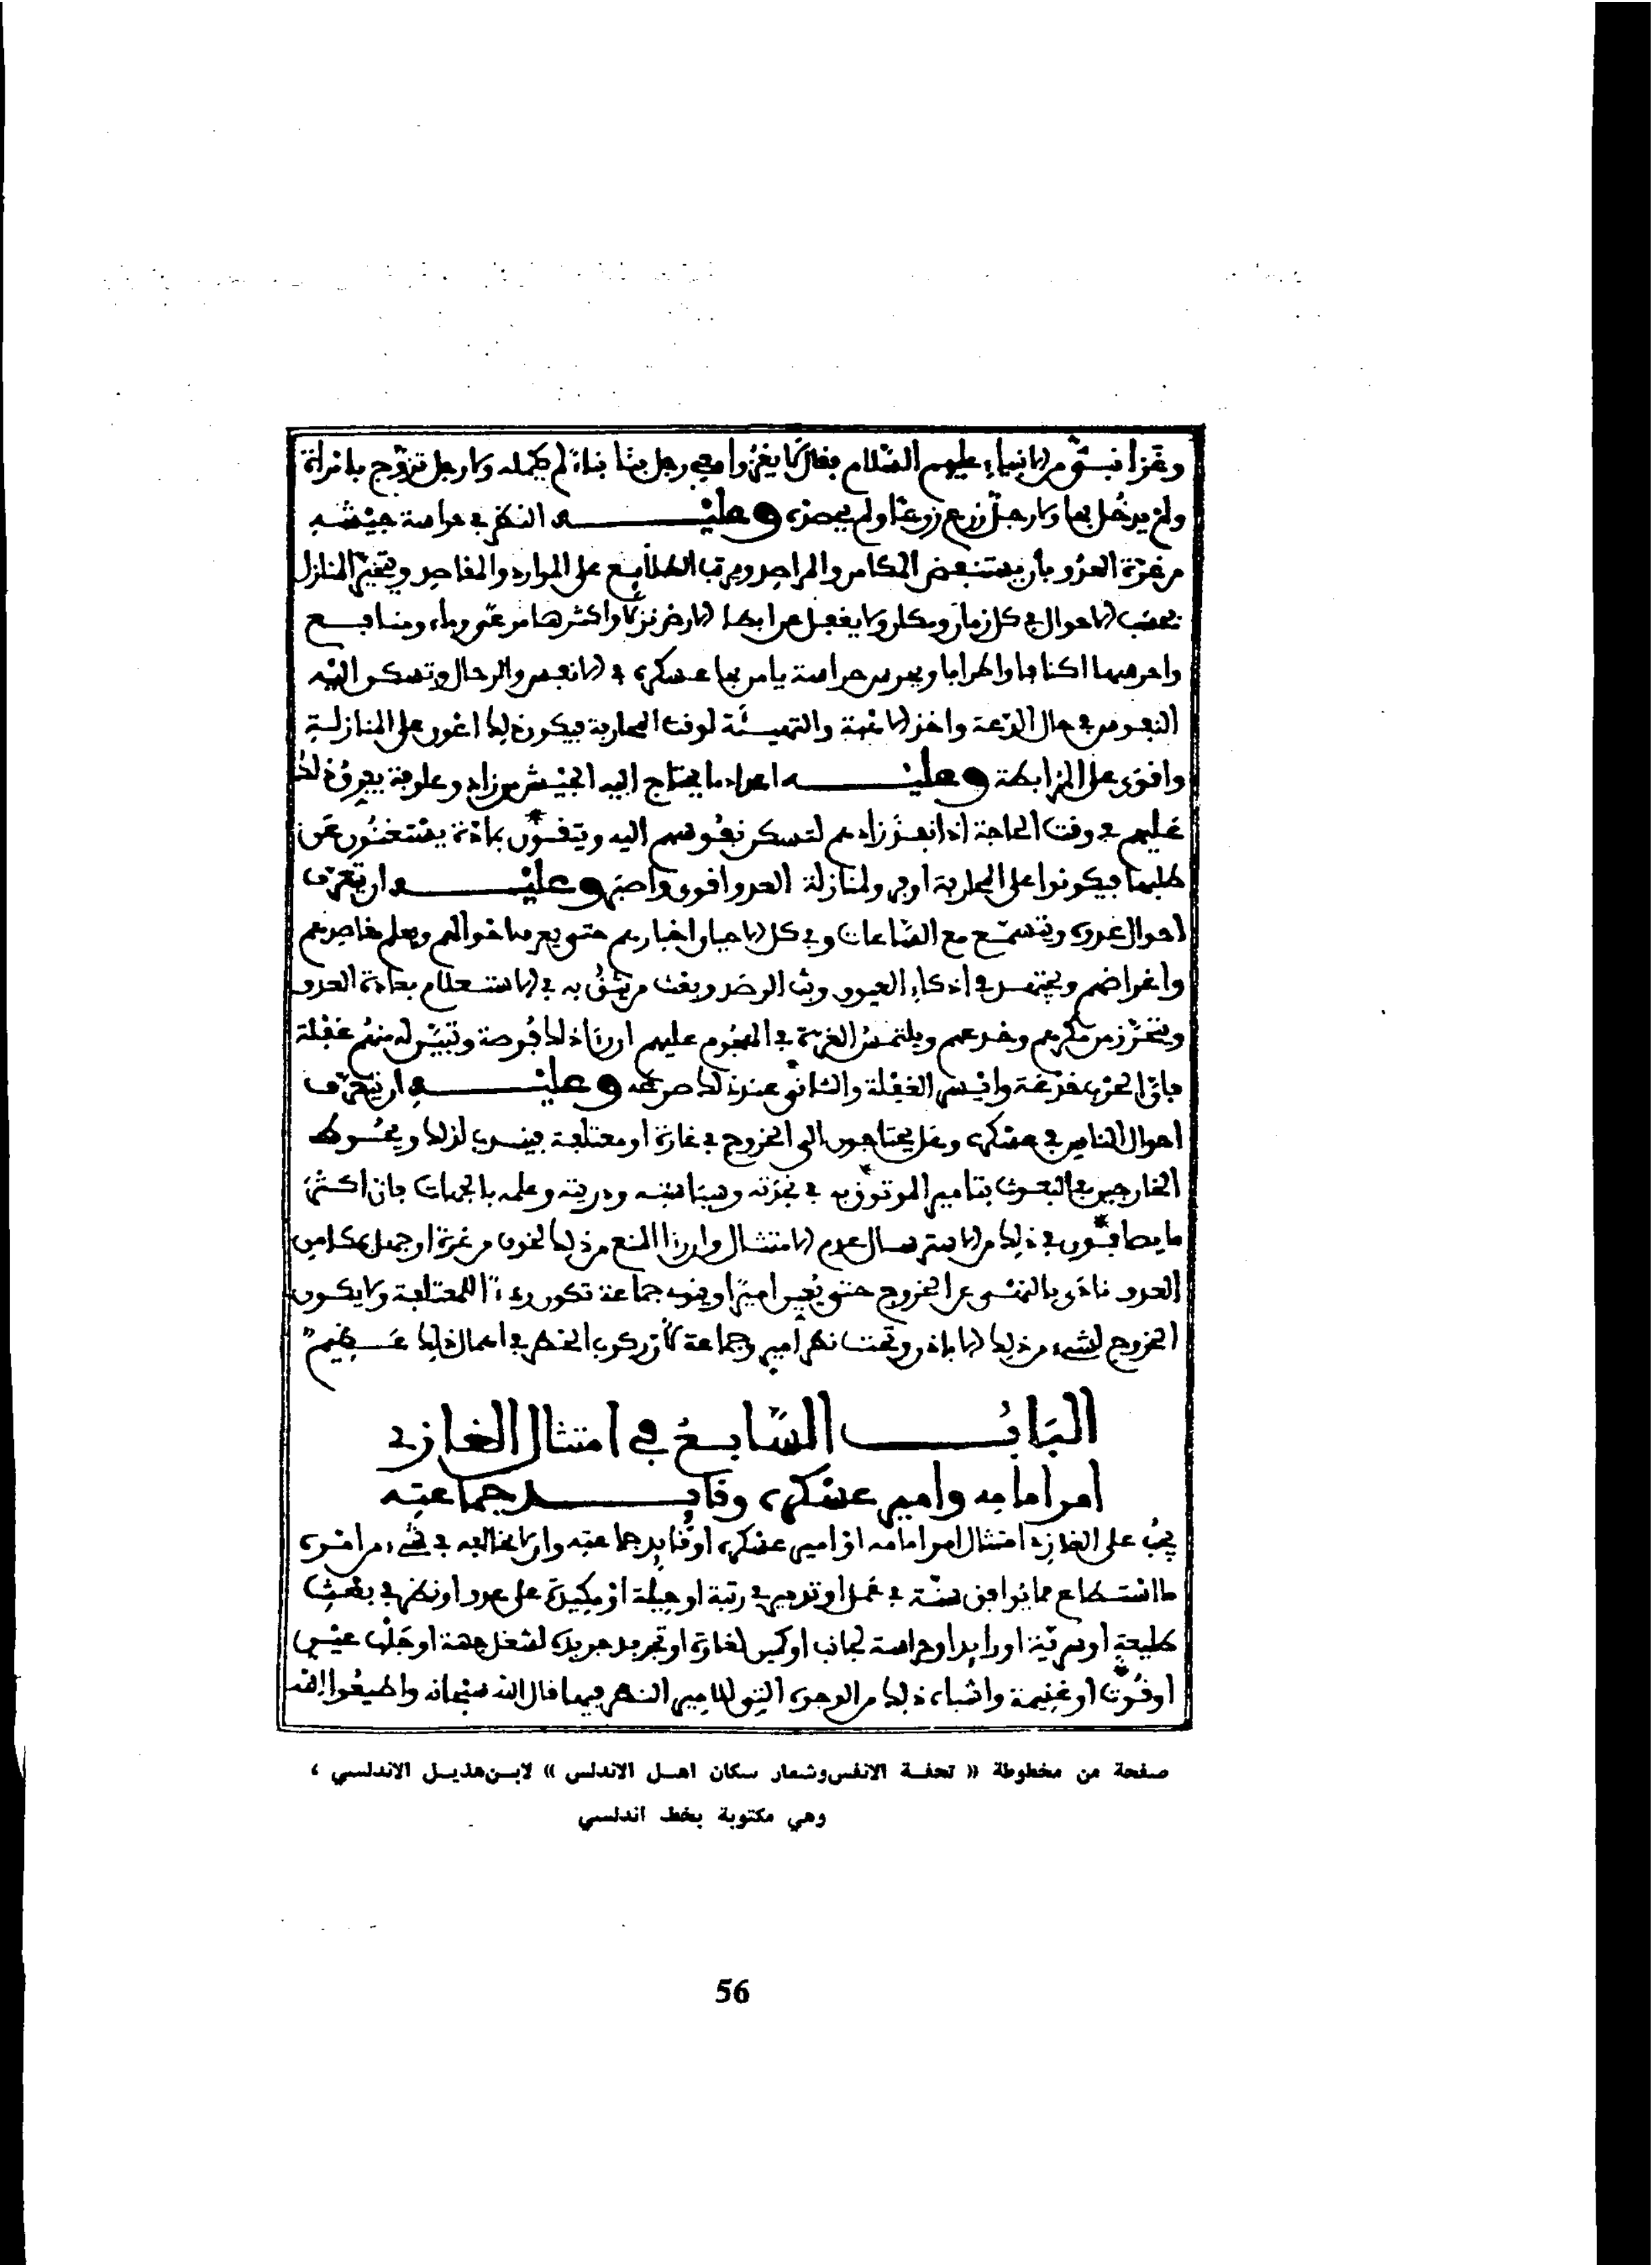 وغزا نبيء من الانبياء عليهم السلام فقال لا يغزوا معي رجل بنا بناء لم يكمله ولا رجل تزوج بامراة
ولم يدخل بها ولا رجل زرع زرعا ولم يحصده وعليه النظر في حراسة جيشه
من غرة العدو بأن يستنفض المكامن والمراصد ويرتب الطلائع على الموارد والمقاصد ويتخير المنازل
بحسب الاحوال في كل زمان ومكان ولا يغفل عن الارض نزلا واكثرها مرعى وماء ومنافع
واحرسها اكنافا واطرافا ويحرس حراسة يامن بها عسكره في الانفس والرحال وتسكن اليه
النفوس في حال الدعة واخذ الاهبة والتهيئة لوقت المحاربة فيكون ذلك اعون على المنازلة
واقوى على المرابطة وعليه اعداد ما يحتاج اليه الجيش من زاد وعلوفة يفرق ذلك
عليهم في وقت الحاجة اذا نفذ زادهم لتسكن نفوسهم اليه ويتقوون بمادة يستغنون عن
طلبها فيكونوا على المحاربة اوفر ولمنازلة العدو اقوى واصبر وعليه ان يتعرف
احوال عدوه ويتسمع مع الساعات وفي كل الاحيان اخبارهم حتى يعرف احوالهم ويعلم مقاصدهم
واغراضهم ويجتهد في اذكاء العيون وبث الرصد وبعث من يثق به في الاستعلام بعادة العدو
ويتحرز من مكرهم وخدعهم ويلتمس الغرة في الهجوم عليهم ان رءا ذلك فرصة وتبين له منهم غفلة
فان الحرب خدعة وافيس الغفلة والتانى عند ذلك صرعه وعليه ان يتعرف
احوال الناس في عسكره وهل يحتاجون الى الخروج في غارة او معتلفة فيندب لذلك ويحوط
الخارجين في البعوث بتامير الموثوق به في نجدته وسياسته ودربته وعلمه بالجهات فان اكثر
ما يصابون في ذلك من الاسترسال وعدم الامتثال وان رءا المنع من ذلك لخوف من غرة او جهل بمكامن
العدو نادى بالنهي عن الخروج حتى يعين اميرا وينوبه جماعة تكون ردءا للمعتلفة ولا يكون
الخروج لشيء من ذلك الا باذن وتحت نظر أمير وجماعة لأن ركوب الخطر في اهمال ذلك عظيم
الباب السابع في امتثال الغازي
امر امامه وامير عسكره وقايد جماعته
يجب على الغازي امتثال امر امامه او امير عسكره او قايد جماعته وان لا يخالفه في شيء من امره
ما استطاع مما يوافق سنة في عمل او تدبير في رتبة او حيلة او مكيدة على عدو او نظر في بعث
طليعة او سرية او رايد او حراسة لجانب او كمين لغارة او تجريد جريدة لشغل جهة او جلب عيش
او قوت او غنيمة واشباه ذلك من الوجوه التي للامير النظر فيها قال الله سبحانه واطيعوا الله
صفحة من مخطوطة « تحفة الانفس وشعار سكان اهل الاندلس » لابن هذيل الاندلسي ،
وهي مكتوبة بخط اندلسي
56